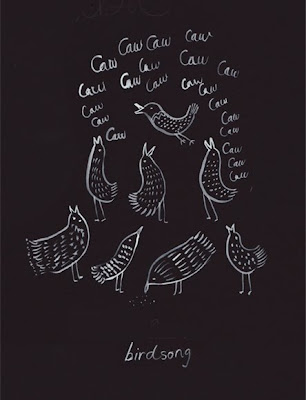 Caw Caw Caw caw
Caw Caw Caw Caw
Caw Caw Caw Caw Caw
Caw Caw
Caw Caw
Caw Caw
Caw
Caw
Caw
birdsong